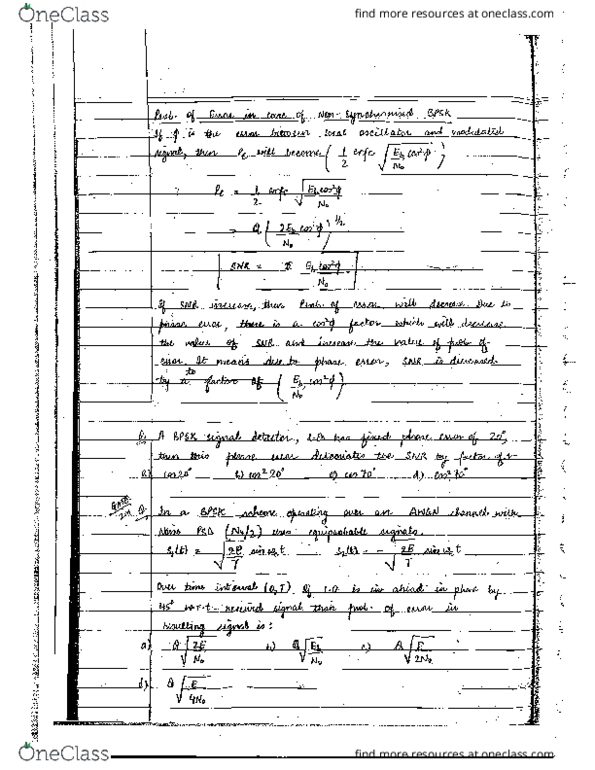 OneClass
find more resources at oneclass.com
Prob. of Error in case of Non-Synchronized BPSK
If φ is the error between local oscillator and modulated
signal, then Pe will become ( 1/2 erfc √(Eb cos²φ / N0) )
Pe = 1/2 erfc √(Eb cos²φ / N0)
Q ( 2Eb cos²φ / N0 )^1/2
SNR = Eb cos²φ / N0
If SNR increase, then Prob. of error will decrease. Due to
phase error, there is a cos²φ factor which will decrease
the value of SNR and increase the value of prob of
error. It means due to phase error, SNR is decreased
to
by a factor of ( Eb cos²φ / N0 )
Q. A BPSK signal detector, L.O. has fixed phase error of 20°,
then this phase error the SNR by factor of :-
a) cos 20° b) cos² 20° c) cos 70° d) cos² 70°
Q. In a BPSK scheme operating over an AWGN channel with
Noise PSD (N0/2) uses equiprobable signals.
S1(t) = √(2E/T) sin ωc t S2(t) = - √(2E/T) sin ωc t
Over time interval (0,T) If L.O is in ahead in phase by
45° w.r.t. received signal than prob. of error in
resulting signal is :
a) Q √(2E/N0) b) Q √(Eb/N0) c) Q √(E/2N0)
d) Q √(E/4N0)
OneClass
find more resources at oneclass.com